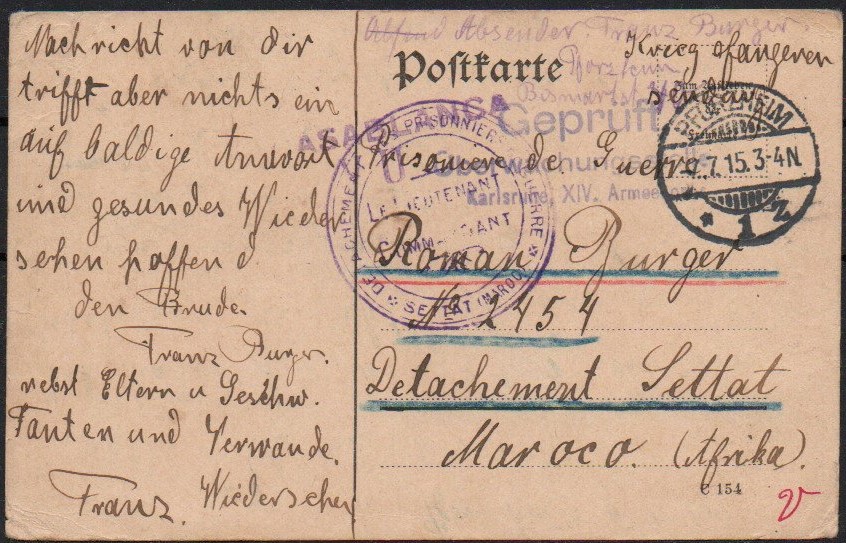 Nachricht von dir
trifft aber nichts ein
auf baldige Antwort
und gesundes Wieder
sehen hoffend
den Brude.
Franz Burger.
nebst Eltern u Geschw.
Tanten und Verwande.
Franz. Wiedersehen
Absender. Franz Burger.
Pforzheim
Bismarkst
Postkarte
Krieg Gefangeren
sendung
PFORZHEIM
7.15.3-4N.
* 1 z
CASABLANCA
Geprüft
Überwachungsstelle
Karlsruhe, XIV. Armeekorps
DETACHEMENT DES PRISONNIERS DE GUERRE
* SETTAT (MAROC) *
LE LIEUTENANT
COMMANDANT
Prisoniere de Guerra
Roman Burger
№ 2454
Detachement Settat
Maroco. (Afrika).
C 154